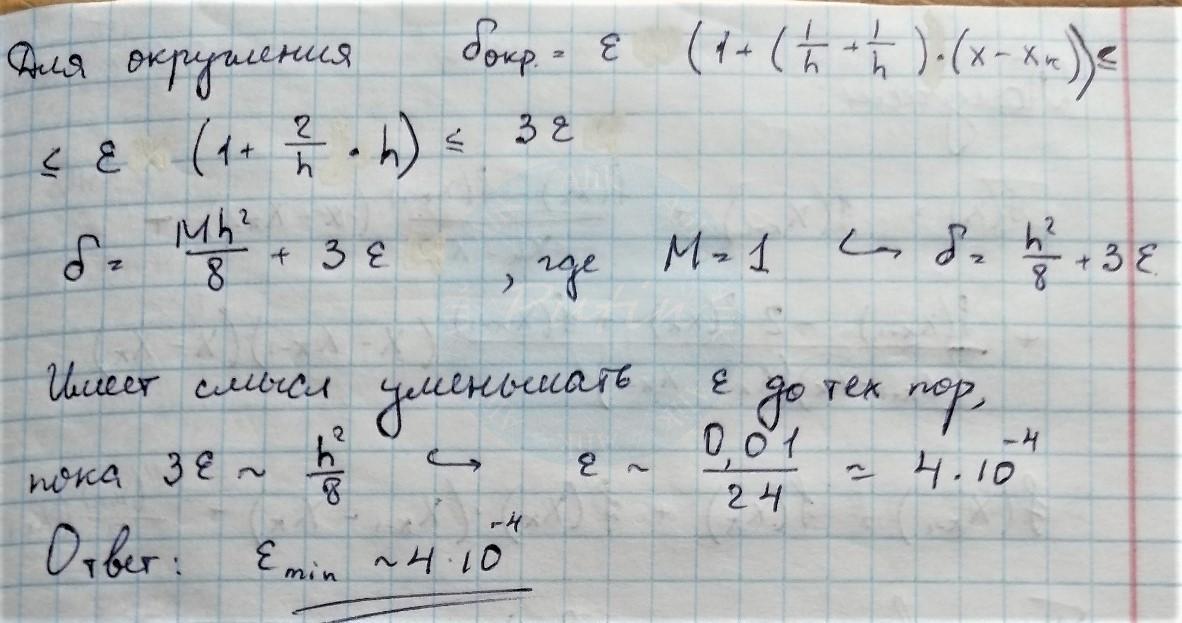 Для округления δокр. = ε (1 + (1/h + 1/h) · (x - xк)) ≤
≤ ε (1 + 2/h · h) ≤ 3ε
δ = Mh²/8 + 3ε , где M = 1 ↪ δ = h²/8 + 3ε
Имеет смысл уменьшать ε до тех пор,
пока 3ε ~ h²/8 ↪ ε ~ 0,01/24 ≈ 4·10⁻⁴
Ответ: εmin ~ 4·10⁻⁴